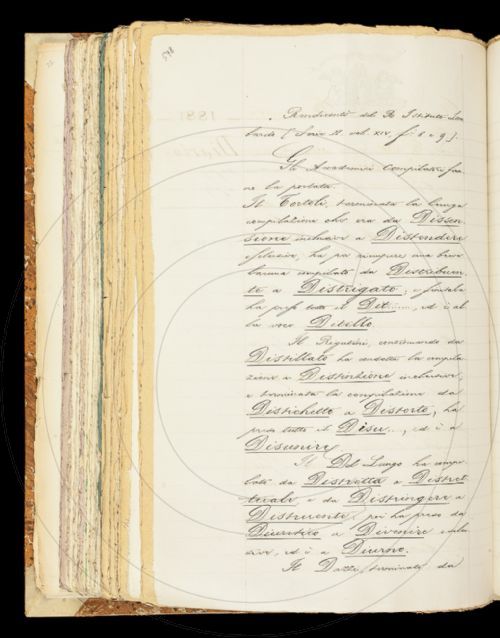 Rendiconti del R. Istituto Lom
bardo (Serie II. vol. XIV. f. 8 e 9).
Gli Accademici Compilatori
la portata.
Il Tortoli, terminata la lunga
compilazione che era da Dissen
sione inclusive a Distendere
esclusive, ha poi
compilato da Distribuen
te a Distrigato, e
ha preso tutto il Dit....., ed è al
la voce Ditello.
Il Rigutini, continuando da
Distillato ha condotto la compila
zione a Distinzione inclusive,
e terminata la compilazione da
Distichetto a Distorto, ha
preso tutto il Disu..., ed è a
Disunire.
Il Del Lungo ha compi
lato da Distretta a Distret
tuale, e da Distringere a
Distruente, poi ha preso da
a Divenire
ed è a Diurno.
Il Dazzi, terminato da